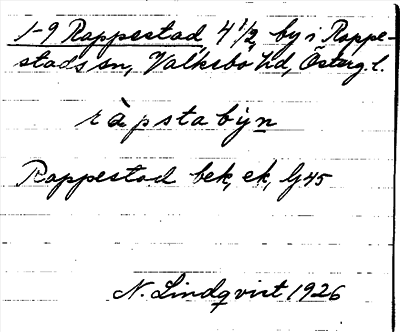 1-9 Rappestad, 4 1/2, by i Rappe-
stads sn, Valkebo hd, Österg. l.
ràpstabyn
Rappestad bek, ek, Gj45
N. Lindqvist 1926